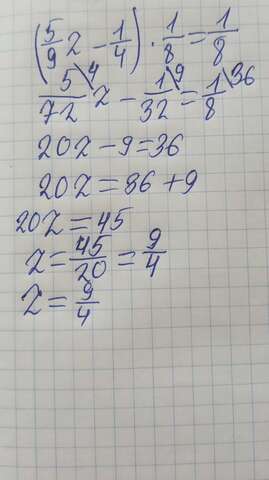 (5/9 z - 1/4) · 1/8 = 1/8
5/72 \4 z - 1/32 \9 = 1/8 \36
20z - 9 = 36
20z = 36 + 9
20z = 45
z = 45/20 = 9/4
z = 9/4